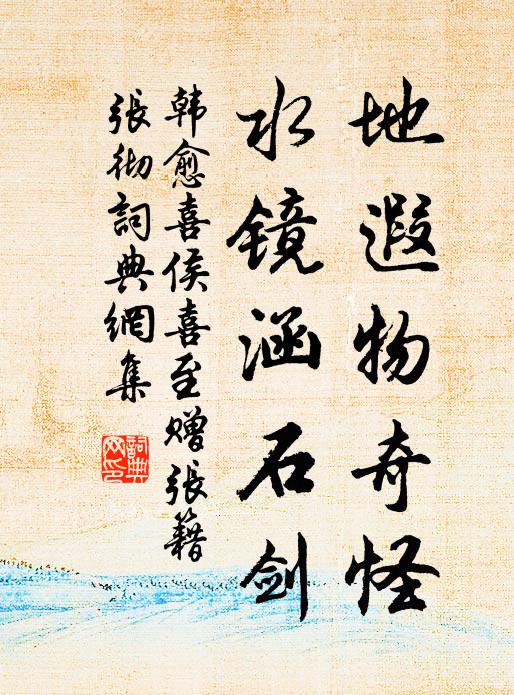 地遐物奇怪
水镜涵石剑
韩愈喜侯喜至赠张籍
张彻词典網集
詞典网印